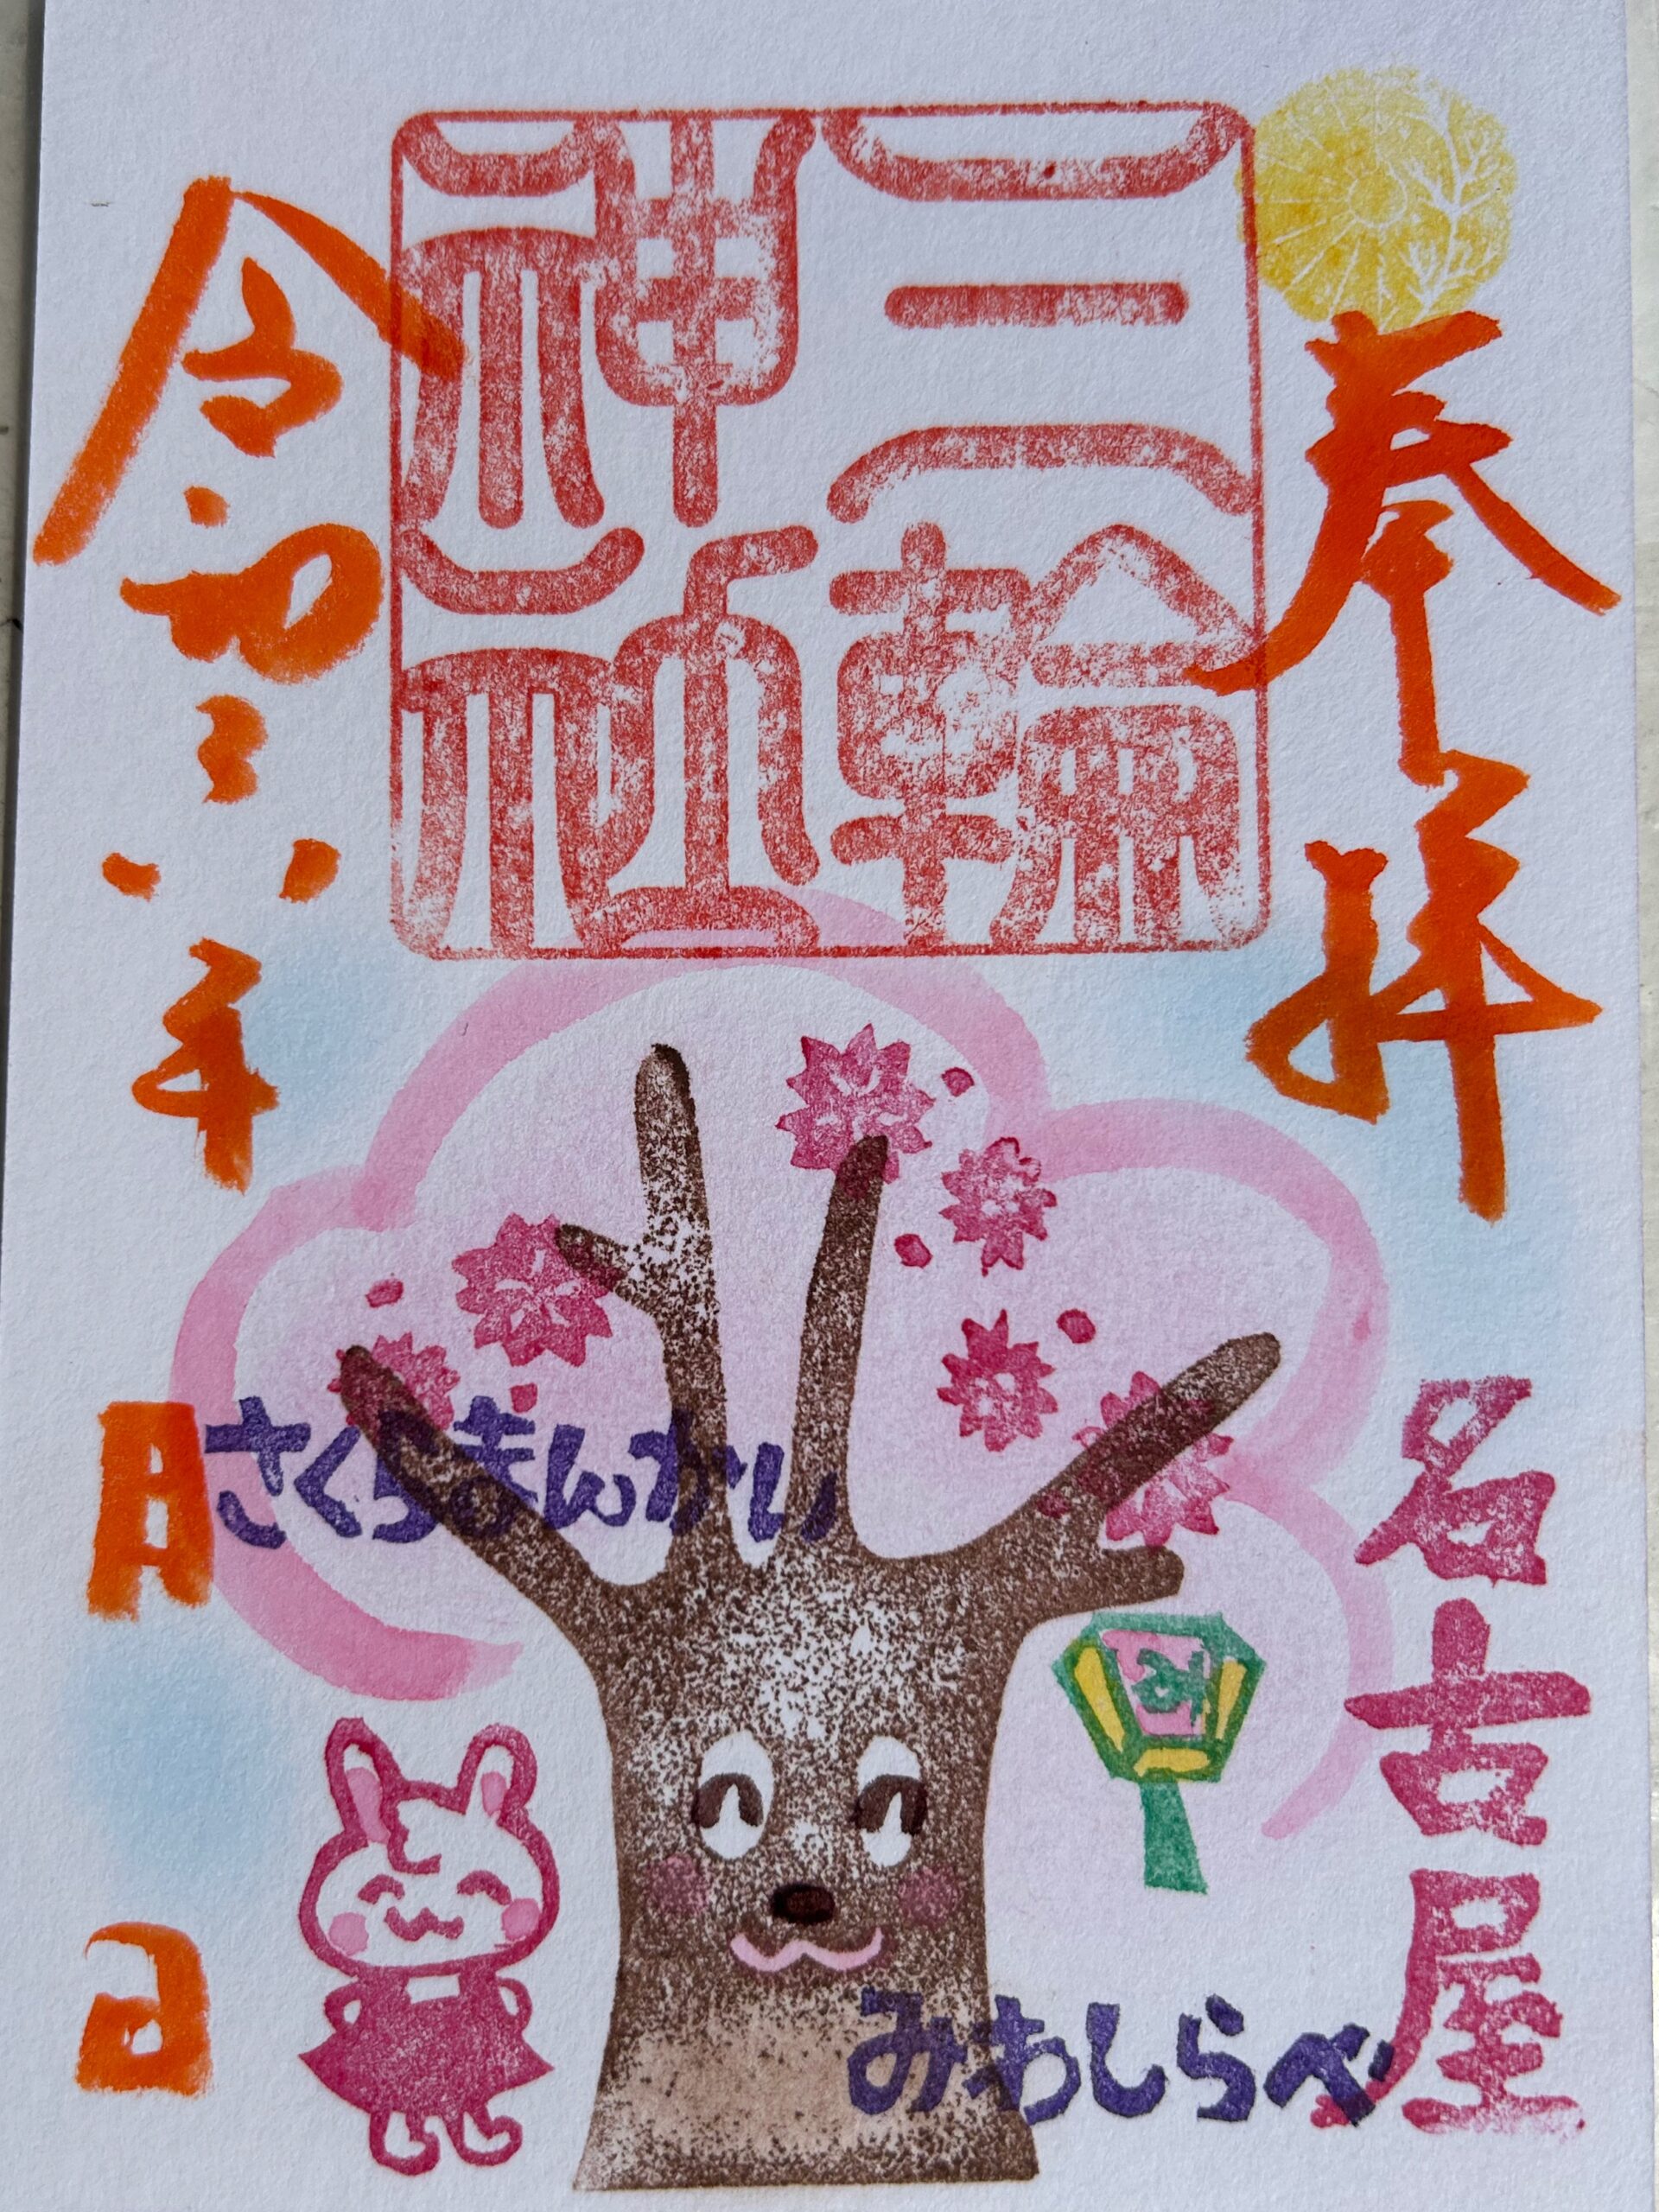 奉拝
三輪
神社
令和六年
月
日
さくらまんかい
み
名古屋
みわしらべ